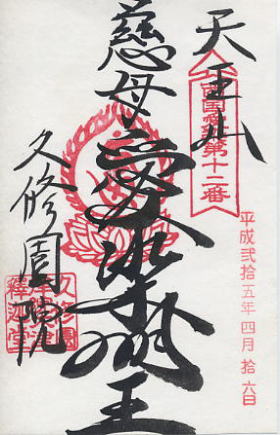 天王山
西国愛染第十二番
平成弐拾五年四月拾六日
慈母愛染明王
久修園院